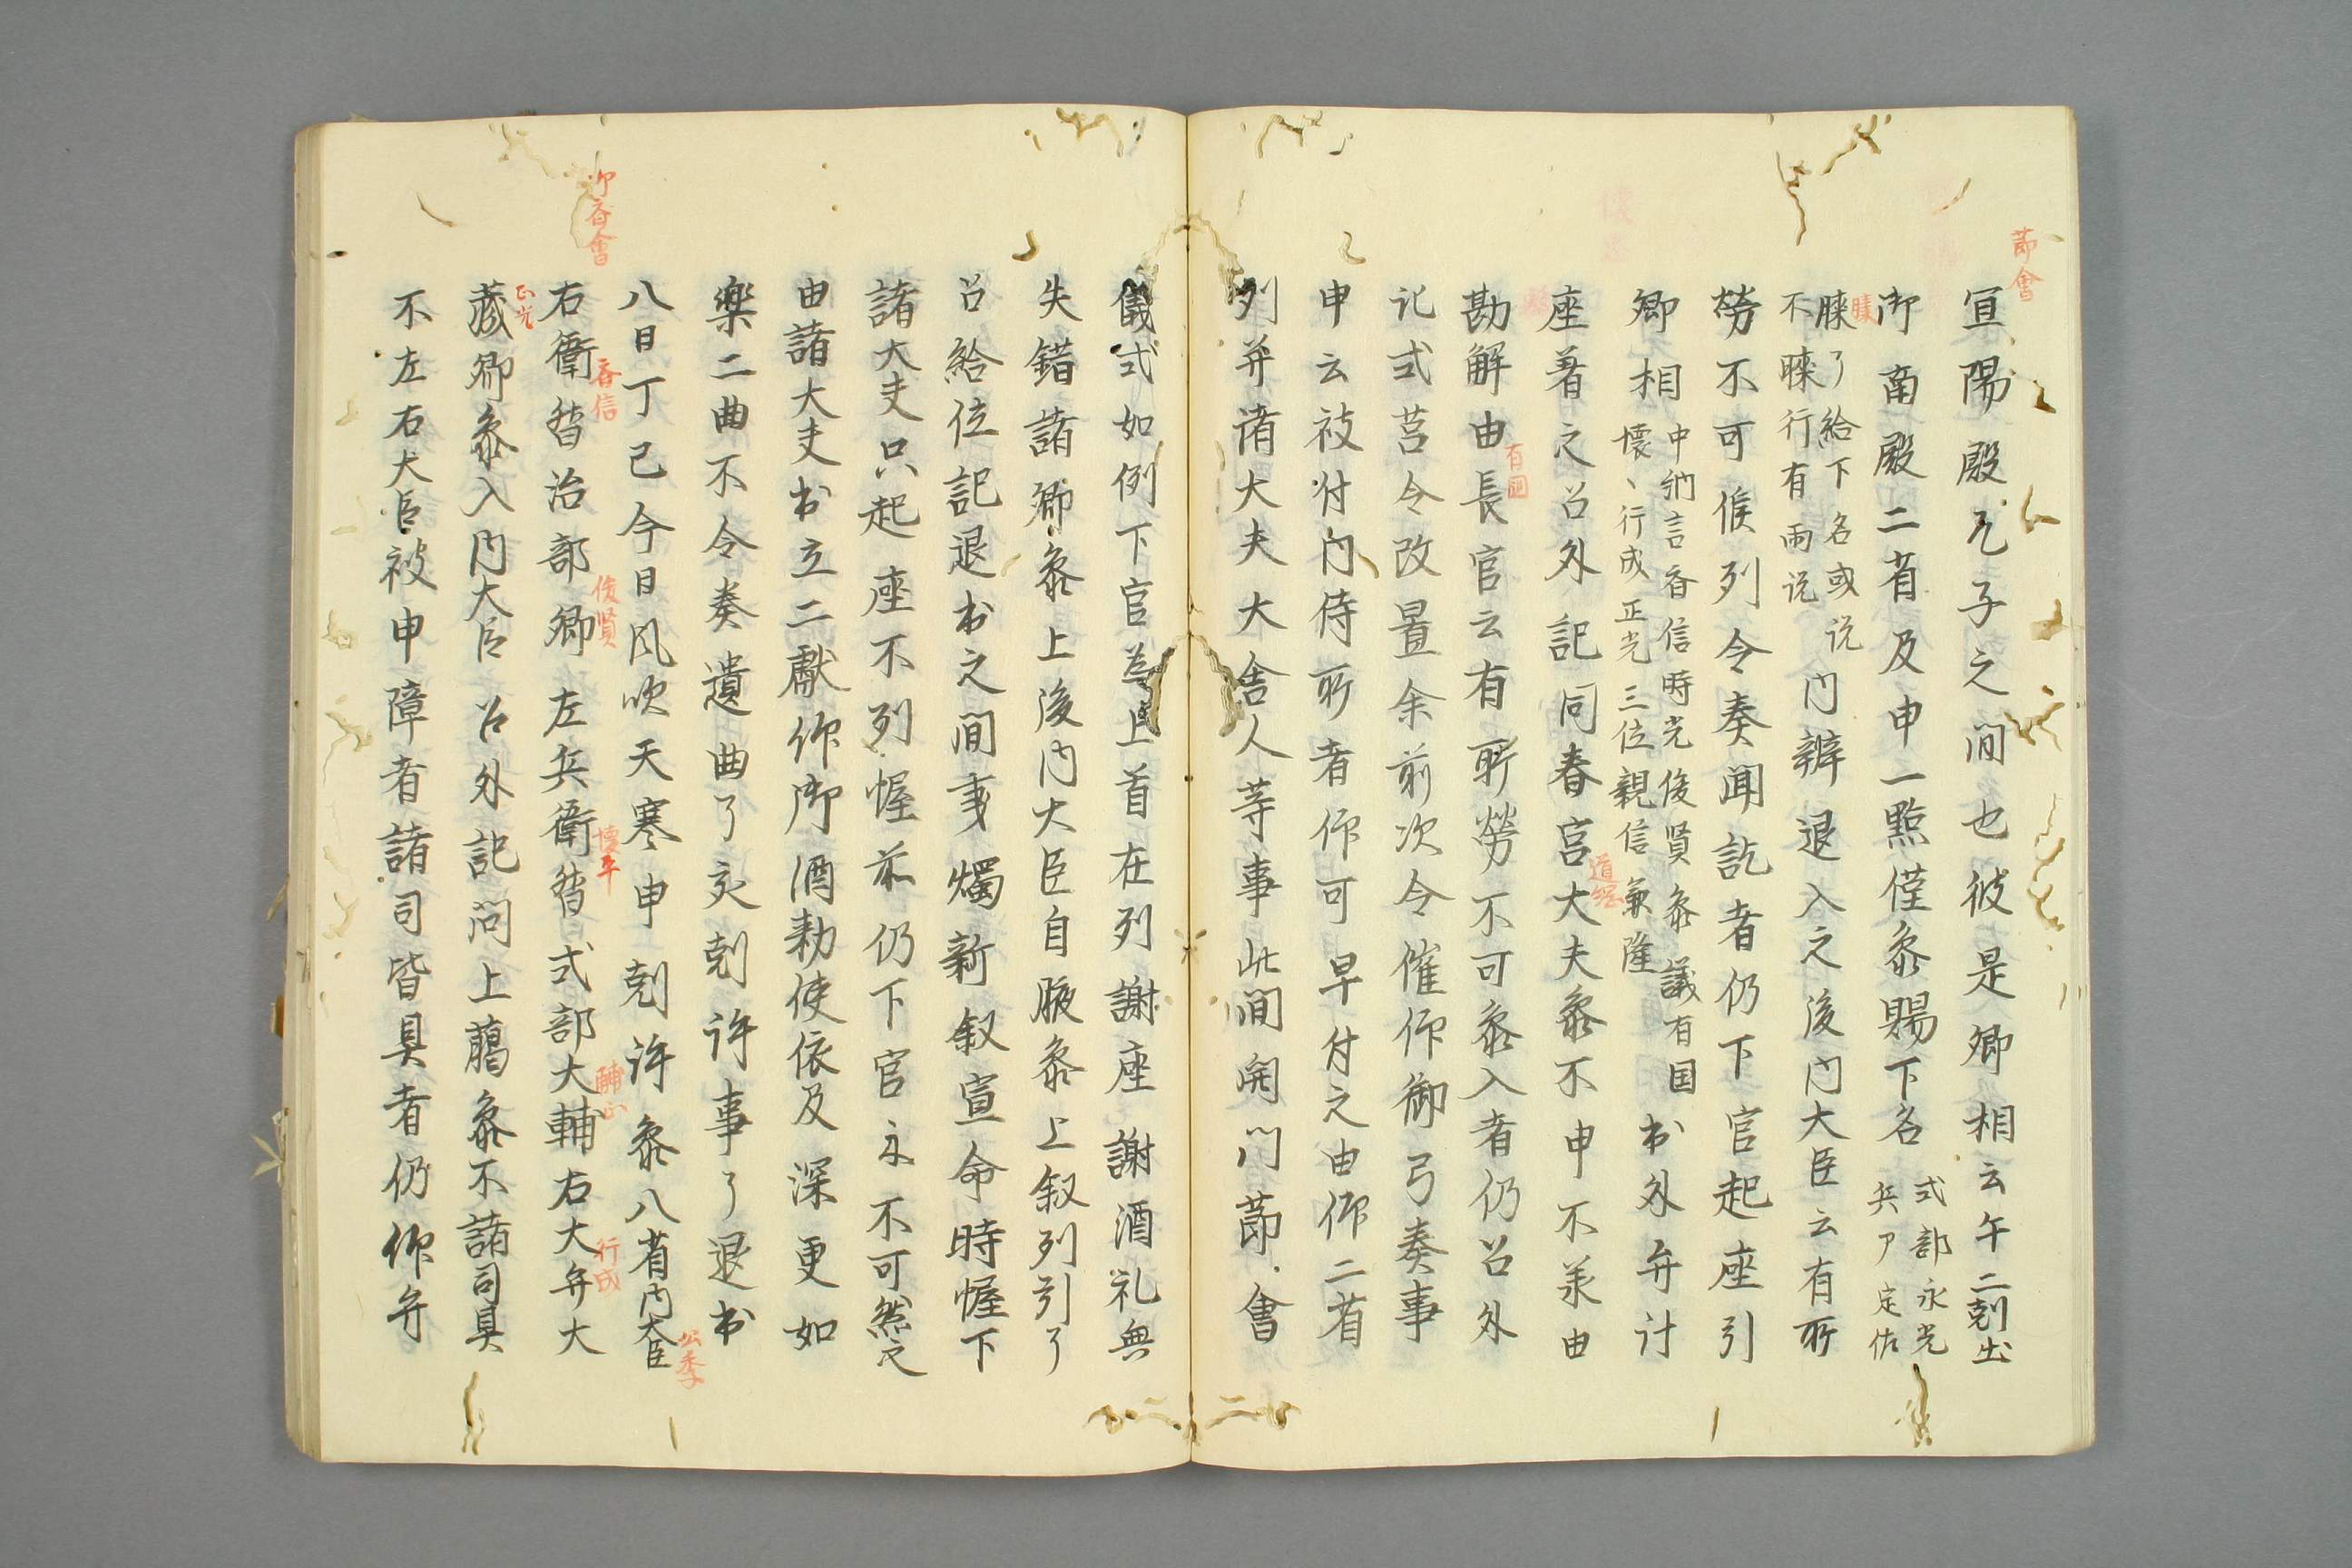 節會
宜陽殿兀子之間也彼是卿相云午二剋出
御南殿二省及申一點僅参賜下名 式部永光
兵ア定佐
膝了給下名或説
不膝行有両説 内辨退入之後内大臣云有所
勞不可候列令奏聞訖者仍下官起座引
卿相 中納言斉信時光俊賢参議有国
懐ヽ行成正光三位親信兼隆 出外弁計
座着之召外記問春宮大夫参不申不参由
道綱
勘解由長官云有所勞不可参入者仍召外
有国
記式筥令改置余前次令催仰御弓奏事
申云被付内侍所者仰可早付之由仰二省
列并諸大夫大舎人等事此間開門節會
儀式如例下官為上首在列謝座謝酒礼無
失錯諸卿参上後内大臣自腋参上叙列引了
召給位記退出之間事燭新叙宣命時幄下
諸大夫只起座不列幄前仍下官示不可然之
由諸大夫出立二獻仰御酒勅使依及深更如
樂二曲不令奏遺曲了亥剋許事了退出
御斉會
八日丁巳今日風吹天寒申剋許参八省内大臣
公季
右衛督治部卿左兵衛督式部大輔右大弁大
斉信
俊賢
懐平
輔正
行成
蔵卿参入内大臣召外記問上臈参不諸司具
正光
不左右大臣被申障者諸司皆具者仍仰弁